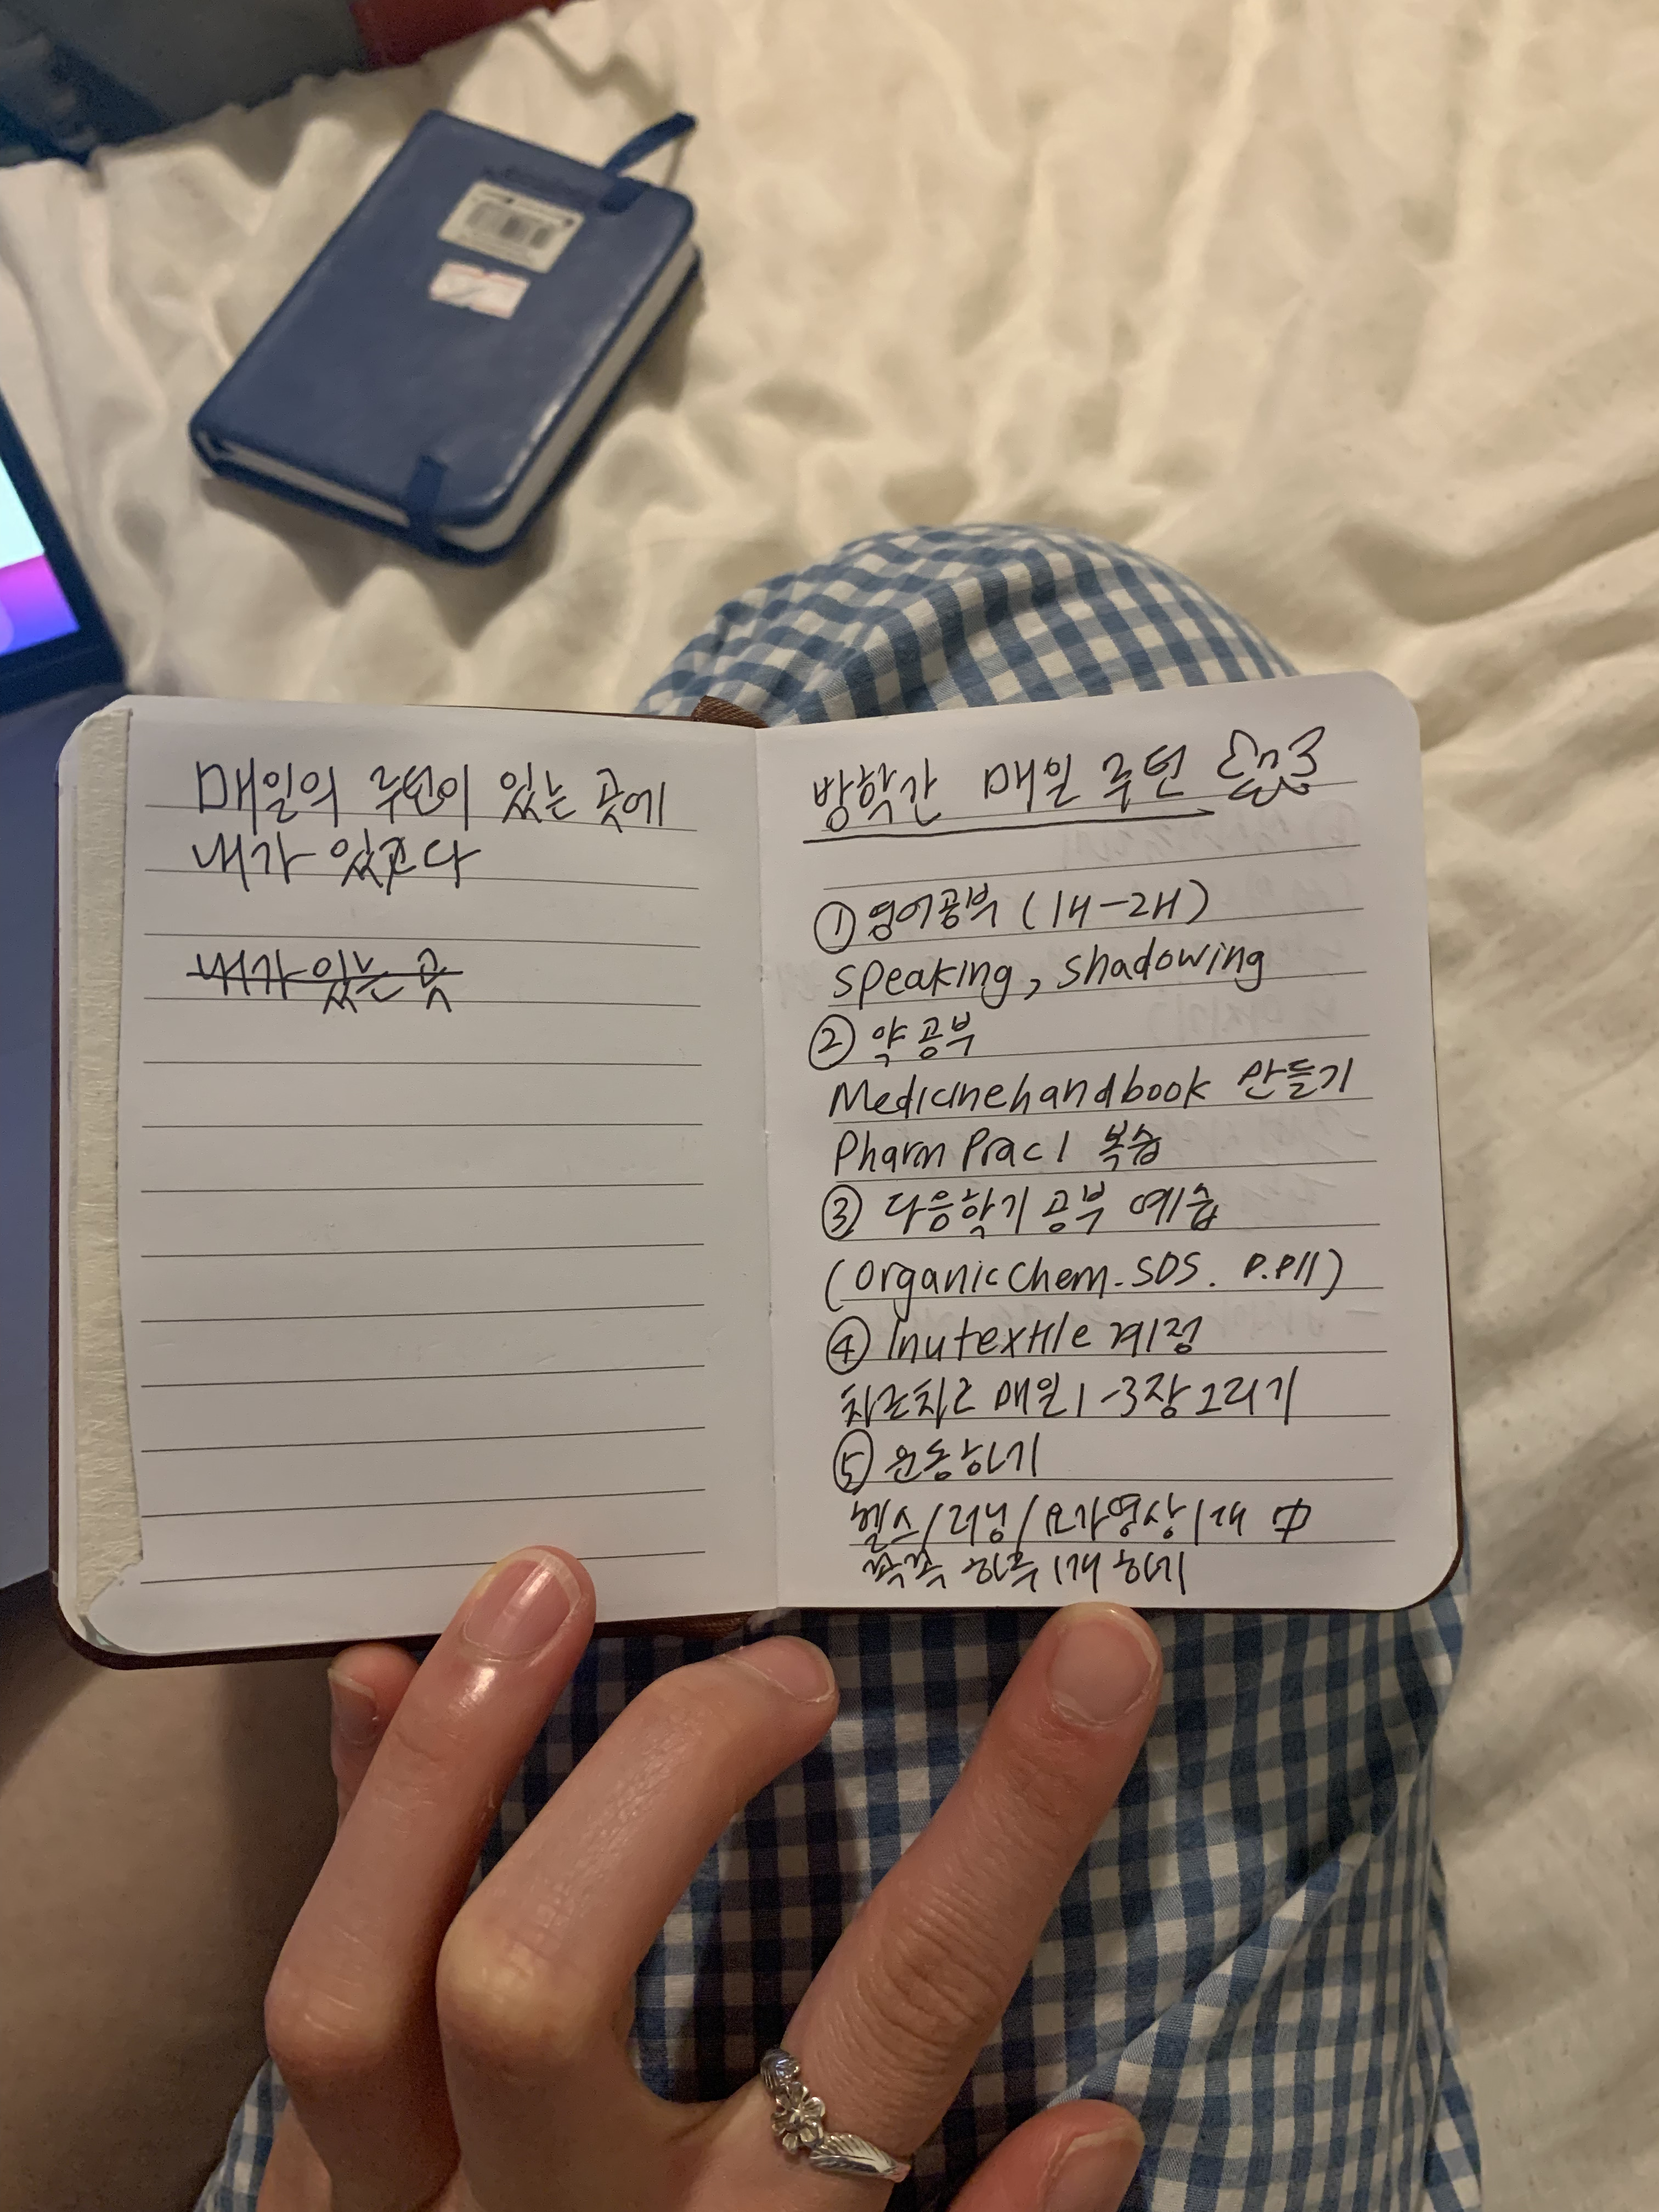 매일의 루틴이 있는 곳에
내가 있다
내가 있는 곳
방학간 매일 루틴
① 영어공부 (1H-2H)
speaking, shadowing
② 약공부
Medicinehandbook 만들기
Pharm Prac 1 복습
③ 다음학기 공부 예습
(OrganicChem. SDS. P.PII)
④ Inutextile 계정
차근차근 매일 1-3장 그리기
⑤ 운동하기
헬스/러닝/요가영상 1개 中
꼭꼭 하루 1개 하기